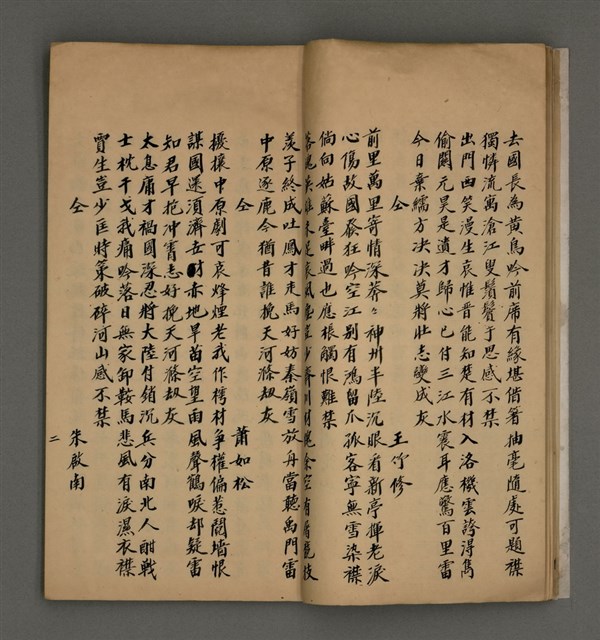 去國長為黃鳥吟前席有緣堪借箸抽毫隨處可題襟
獨憐流寓滄江叟鬚鬢于思感不禁
出門西笑漫生哀惟晉能知楚有材入洛機雲誇得雋
偷關元昊是遺才歸心已付三江水震耳應驚百里雷
今日棄繻方決決莫將壯志變成灰
仝 王竹修
前里萬里寄情深莽々神州半陸沉眼看新亭揮老淚
心傷故國發狂吟空江別有鴻留爪孤客寧無雪染襟
倘向姑蘇臺畔過也應振觸恨難禁
羨子終成吐鳳才走馬好妨秦嶺雪放舟當聽禹門雷
中原逐鹿今猶昔誰挽天河滌劫灰
仝 蕭如松
擾攘中原劇可哀烽煙老我作樗材爭權偏惹鬩墻恨
謀國還須濟世財赤地旱苗空望雨風聲鶴唳却疑雷
知君早抱冲霄志好挽天河滌劫灰
太息庸才禍國深忍將大陸付銷沉兵分南北人酣戰
士枕干戈我痛吟落日無家卸鞍馬悲風有淚濕衣襟
賈生豈少匡時策破碎河山感不禁
仝 朱啟南
二